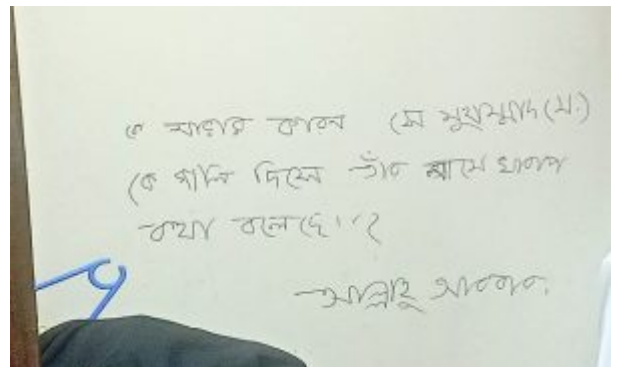 কে মারার কারন সে মুহাম্মাদ (স:)
কে গালি দিয়ে তাঁর নামে খারাপ
কথা বলেছে।
আল্লাহু আকবার